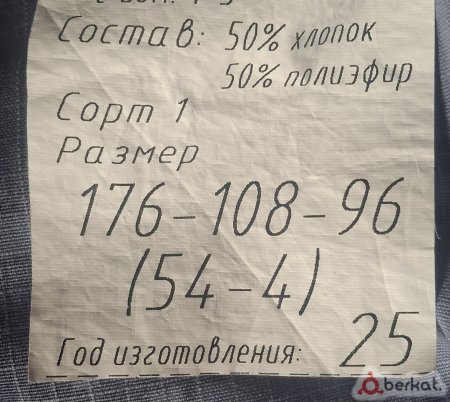 Состав: 50% хлопок
50% полиэфир
Сорт 1
Размер
176-108-96
(54-4)
Год изготовления: 25
berkat.